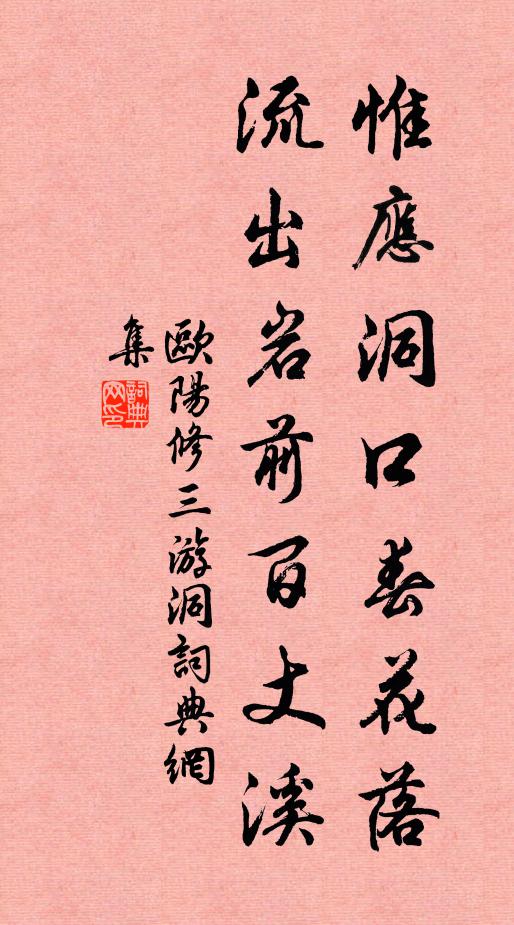 惟應洞口春花落
流出岩前百丈溪
歐陽修三游洞詞典網
集
詞典網印